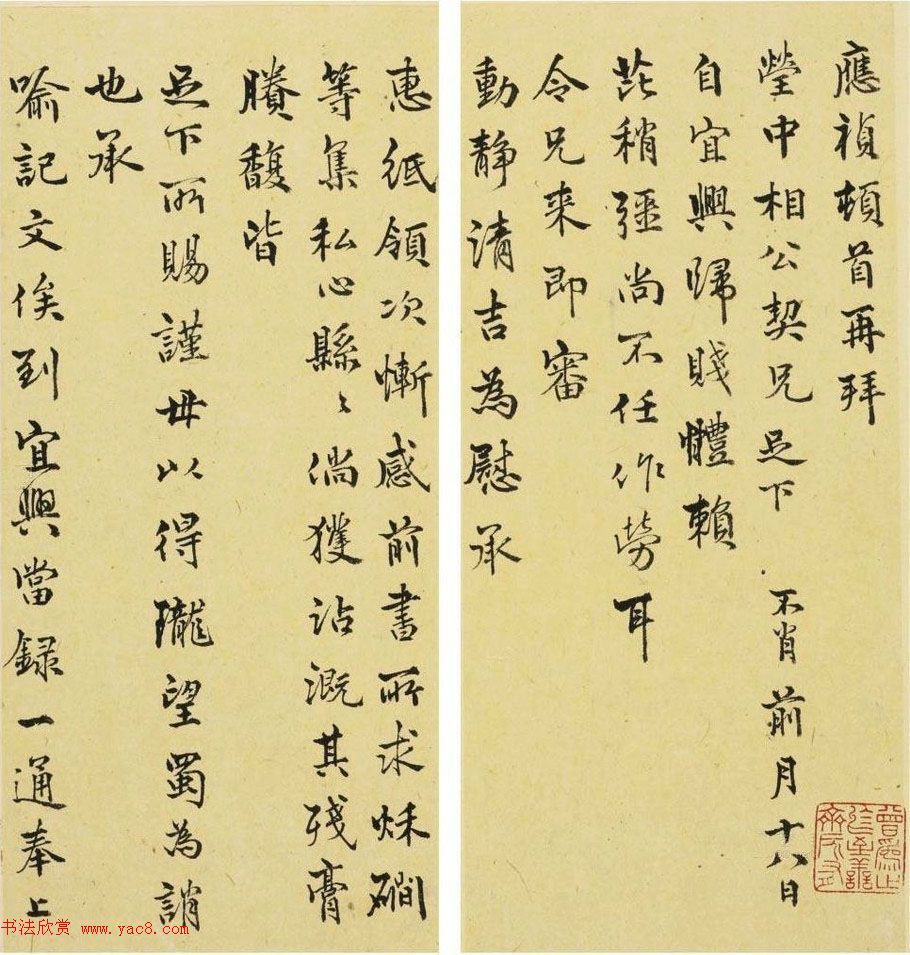 應禎頓首再拜
瑩中相公契兄足下 不肖前月十八日
自宜興歸賤軆賴
芘稍彊尚不任作勞耳
令兄来即審
動静清吉為慰承
惠紙領次慚感前書所求炑磵
等集私心縣〻倘獲沾溉其残膏
賸馥皆
足下所賜謹毋以得隴望蜀為誚
也承
喻記文俟到宜興當録一通奉上
书法欣赏 www.yac8.com